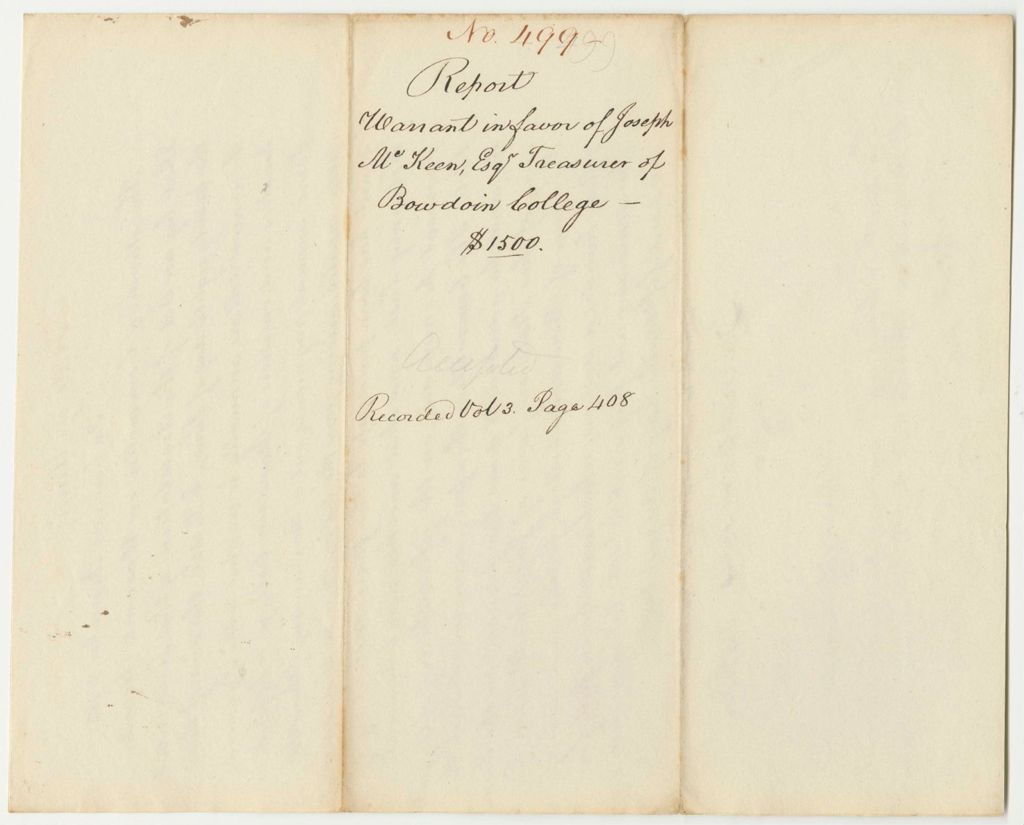 No. 499
Report
Warrant in favor of Joseph
Mc Keen, Esqr Treasurer of
Bowdoin College —
$1500.
Accepted
Recorded Vol 3. Page 408